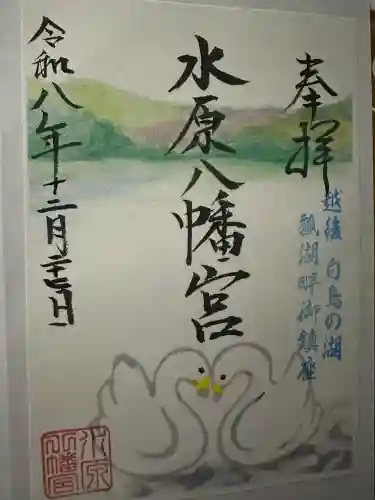 奉拝
越後 白鳥の湖
瓢湖畔御鎮座
水原八幡宮
令和八年十二月二十七日
水原八幡宮